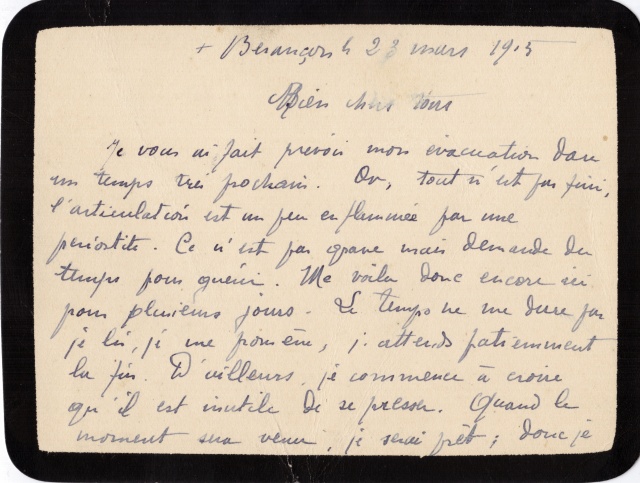 + Besançon le 23 mars 1915
Bien chers tous
Je vous ai fait prévoir mon évacuation dans
un temps très prochain. Or, tout n'est pas fini,
l'articulation est un peu enflammée par une
périostite. Ce n'est pas grave mais demande du
temps pour guérir. Me voila donc encore ici
pour plusieurs jours. Le temps ne me dure pas
je lis, je me promène, j'attends patiemment
la fin. D'ailleurs, je commence à croire
qu'il est inutile de se presser. Quand le
moment sera venu, je serai prêt ; donc je